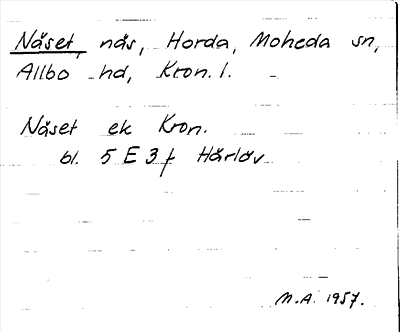 Näset, näs, Horda, Moheda sn,
Allbo hd, Kron. l.
Näset ek Kron.
bl. 5 E 3 f Härlöv
M.A. 1957.